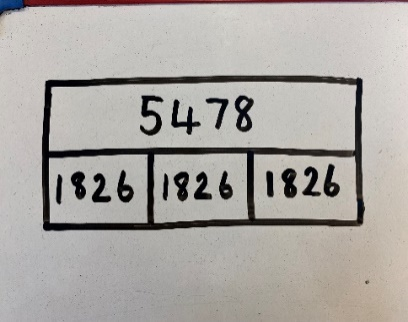 5478
1826 1826 1826